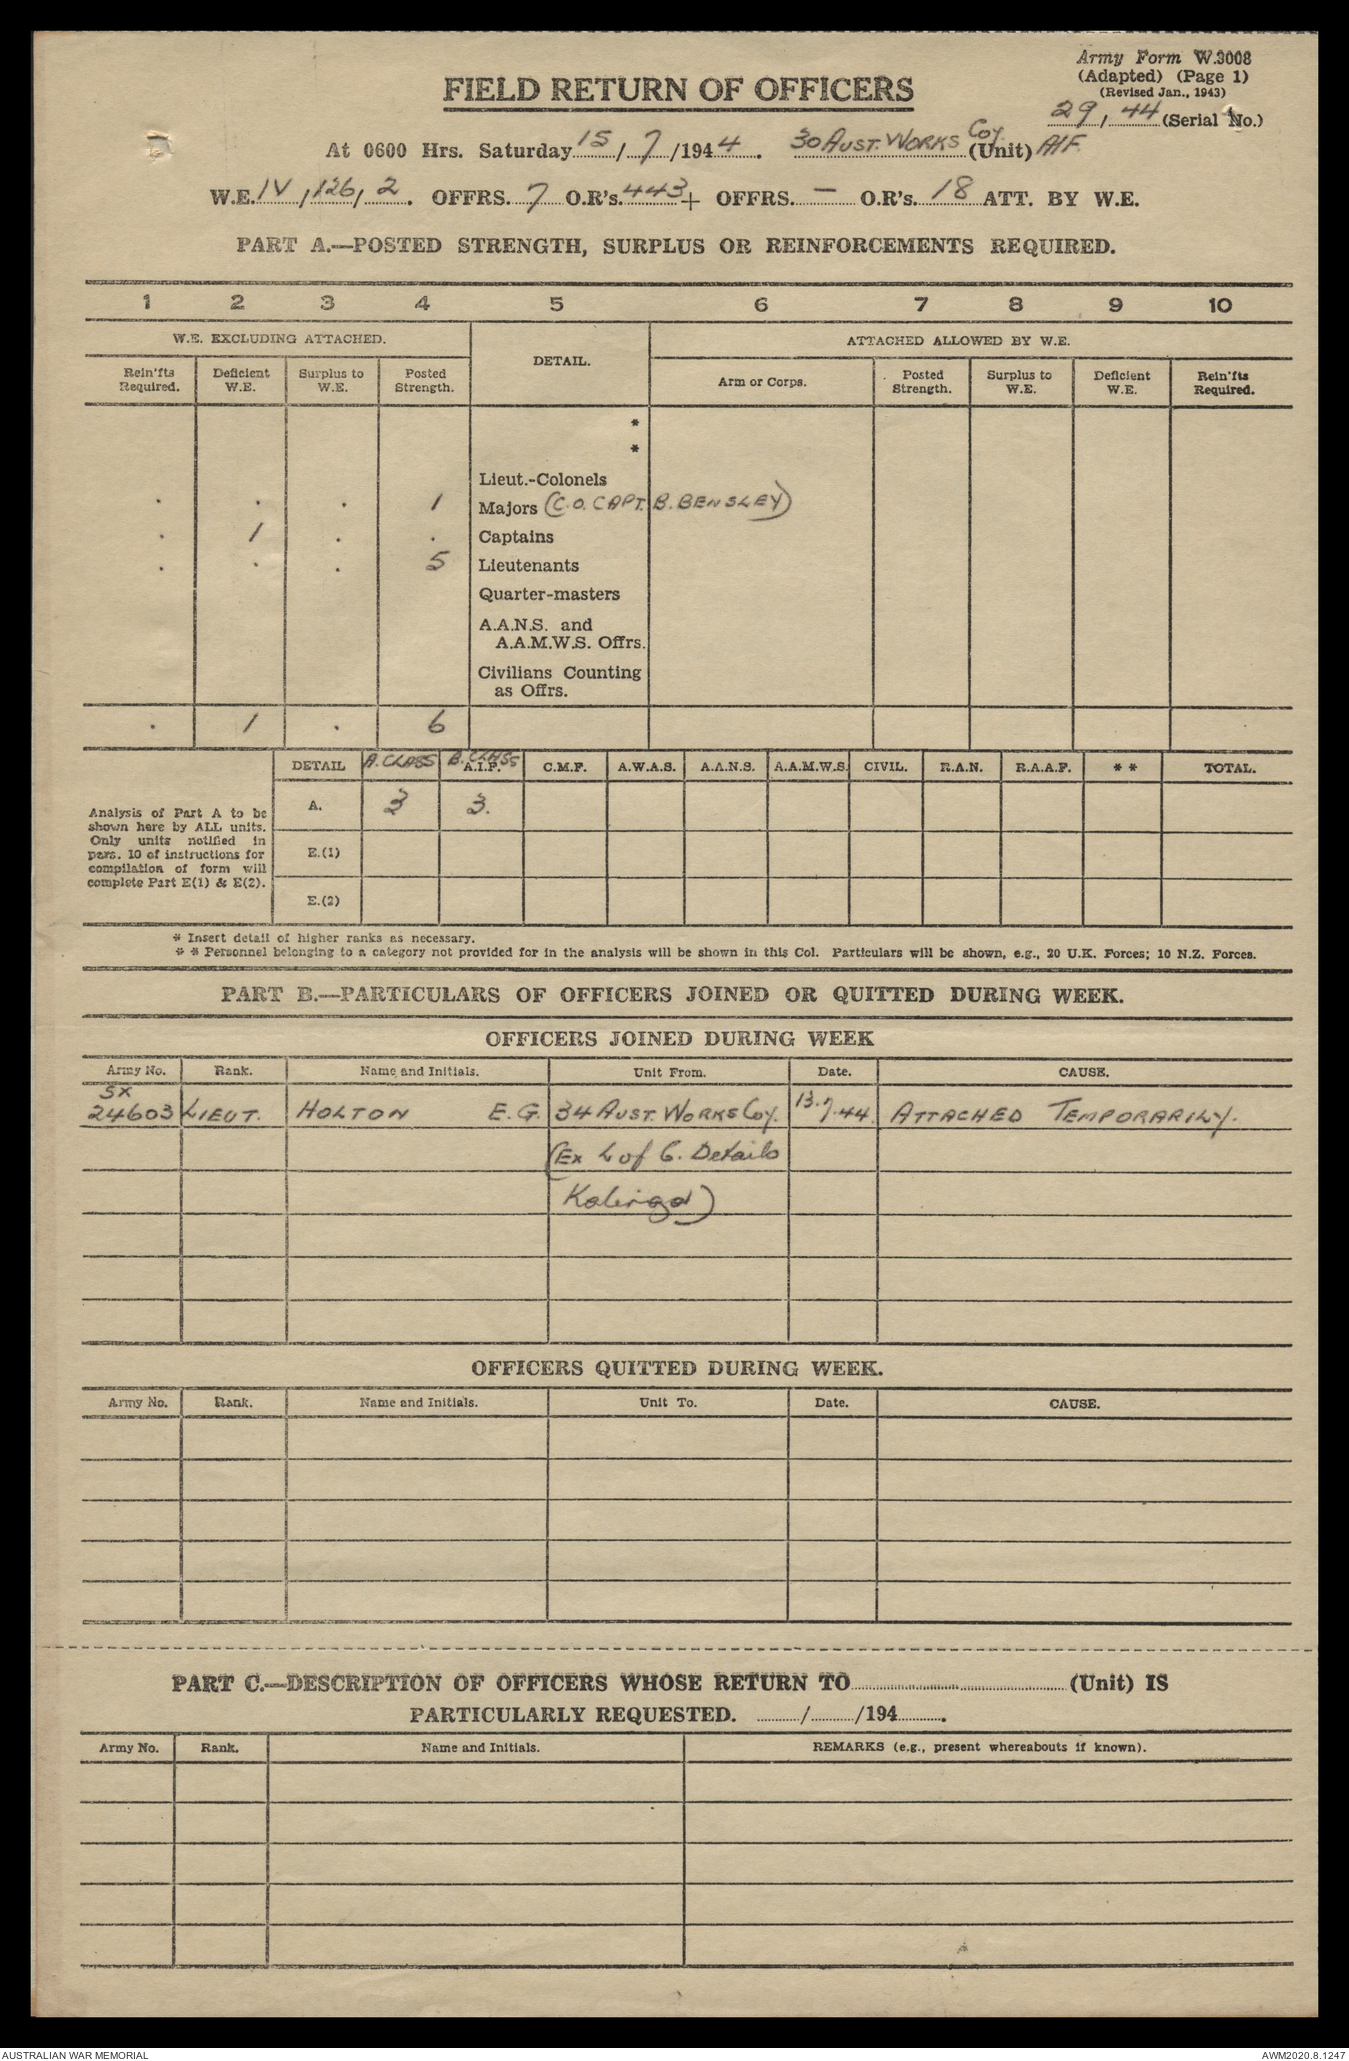 Army Form W.3008
(Adapted) (Page 1)
(Revised Jan., 1943)
29, 44 (Serial No.)
FIELD RETURN OF OFFICERS
At 0600 Hrs. Saturday 15/7/1944. 30 AUST. WORKS Coy. (Unit) AIF.
W.E. IV, 126, 2. OFFRS. 7 O.R's. 443 + OFFRS. — O.R's. 18 ATT. BY W.E.
PART A.—POSTED STRENGTH, SURPLUS OR REINFORCEMENTS REQUIRED.
1 2 3 4 5 6 7 8 9 10
W.E. EXCLUDING ATTACHED. DETAIL. ATTACHED ALLOWED BY W.E.
Rein'fts Required. Deficient W.E. Surplus to W.E. Posted Strength. Arm or Corps. Posted Strength. Surplus to W.E. Deficient W.E. Rein'fts Required.
*
*
Lieut.-Colonels
. . . 1 Majors (C.O. CAPT. B. BENSLEY)
. 1 . . Captains
. . . 5 Lieutenants
Quarter-masters
A.A.N.S. and
A.A.M.W.S. Offrs.
Civilians Counting
as Offrs.
. 1 . 6
DETAIL A. CLASS B. CLASS A.I.F. C.M.F. A.W.A.S. A.A.N.S. A.A.M.W.S. CIVIL. R.A.N. R.A.A.F. * * TOTAL.
A. 3 3.
Analysis of Part A to be
shown here by ALL units.
Only units notified in
para. 10 of instructions for
compilation of form will
complete Part E(1) & E(2).
E.(1)
E.(2)
* Insert detail of higher ranks as necessary.
* * Personnel belonging to a category not provided for in the analysis will be shown in this Col. Particulars will be shown, e.g., 20 U.K. Forces; 10 N.Z. Forces.
PART B.—PARTICULARS OF OFFICERS JOINED OR QUITTED DURING WEEK.
OFFICERS JOINED DURING WEEK
Army No. Rank. Name and Initials. Unit From. Date. CAUSE.
SX
24603 LIEUT. HOLTON E.G. 34 AUST. WORKS Coy. 13.7.44. ATTACHED TEMPORARILY.
(Ex L of C. Details
Kalinga)
OFFICERS QUITTED DURING WEEK.
Army No. Rank. Name and Initials. Unit To. Date. CAUSE.
PART C.—DESCRIPTION OF OFFICERS WHOSE RETURN TO (Unit) IS
PARTICULARLY REQUESTED. / /194 .
Army No. Rank. Name and Initials. REMARKS (e.g., present whereabouts if known).
AUSTRALIAN WAR MEMORIAL AWM2020.8.1247